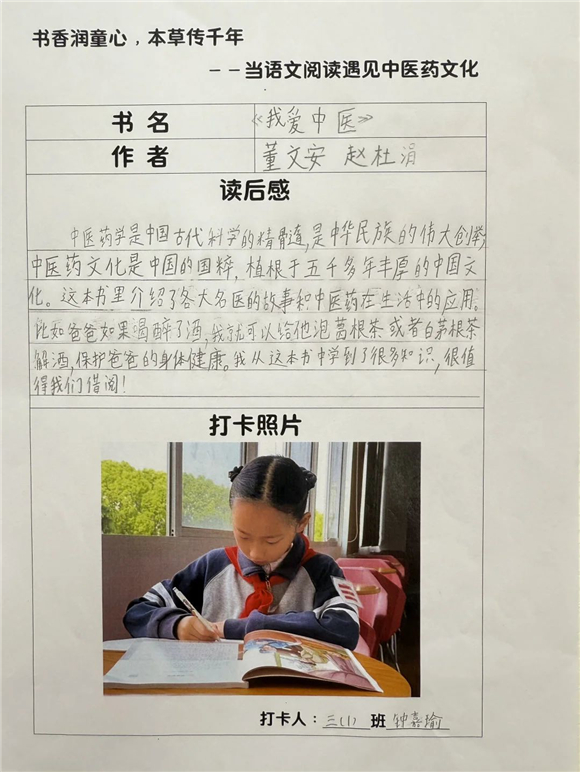 书香润童心，本草传千年
——当语文阅读遇见中医药文化
书名 《我爱中医》
作者 董文安 赵杜涓
读后感
中医药学是中国古代科学的精髓造,是中华民族的伟大创举,
中医药文化是中国的国粹，植根于五千多年丰厚的中国文
化。这本书里介绍了各大名医的故事和中医药在生活中的应用。
比如爸爸如果喝醉了酒,我就可以给他泡葛根茶或者白茅根茶
解酒,保护爸爸的身体健康。我从这本书中学到了很多知识,很值
得我们借阅!
打卡照片
打卡人：三(1)班 钟嘉瑜